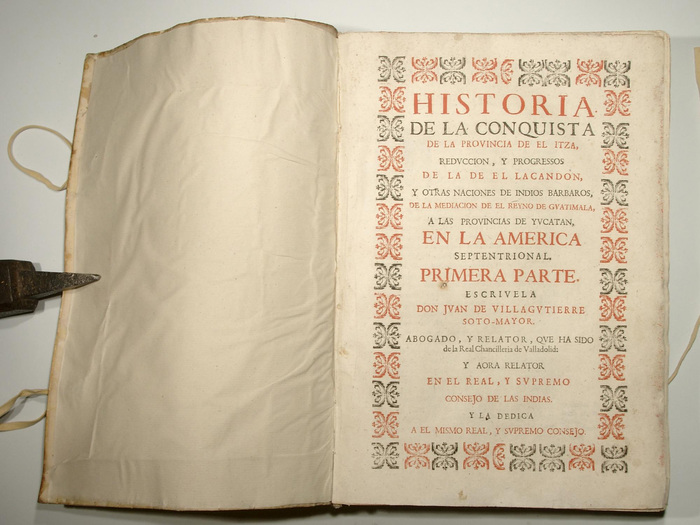 HISTORIA
DE LA CONQUISTA
DE LA PROVINCIA DE EL ITZA,
REDVCCION, Y PROGRESSOS
DE LA DE EL LACANDON,
Y OTRAS NACIONES DE INDIOS BARBAROS,
DE LA MEDIACION DE EL REYNO DE GVATIMALA,
A LAS PROVINCIAS DE YVCATAN,
EN LA AMERICA
SEPTENTRIONAL.
PRIMERA PARTE.
ESCRIVELA
DON JVAN DE VILLAGVTIERRE
SOTO-MAYOR.
ABOGADO, Y RELATOR, QVE HA SIDO
de la Real Chancilleria de Valladolid:
Y AORA RELATOR
EN EL REAL, Y SVPREMO
CONSEJO DE LAS INDIAS.
Y LA DEDICA
A EL MISMO REAL, Y SVPREMO CONSEJO.